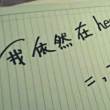 (我依然在he
=,